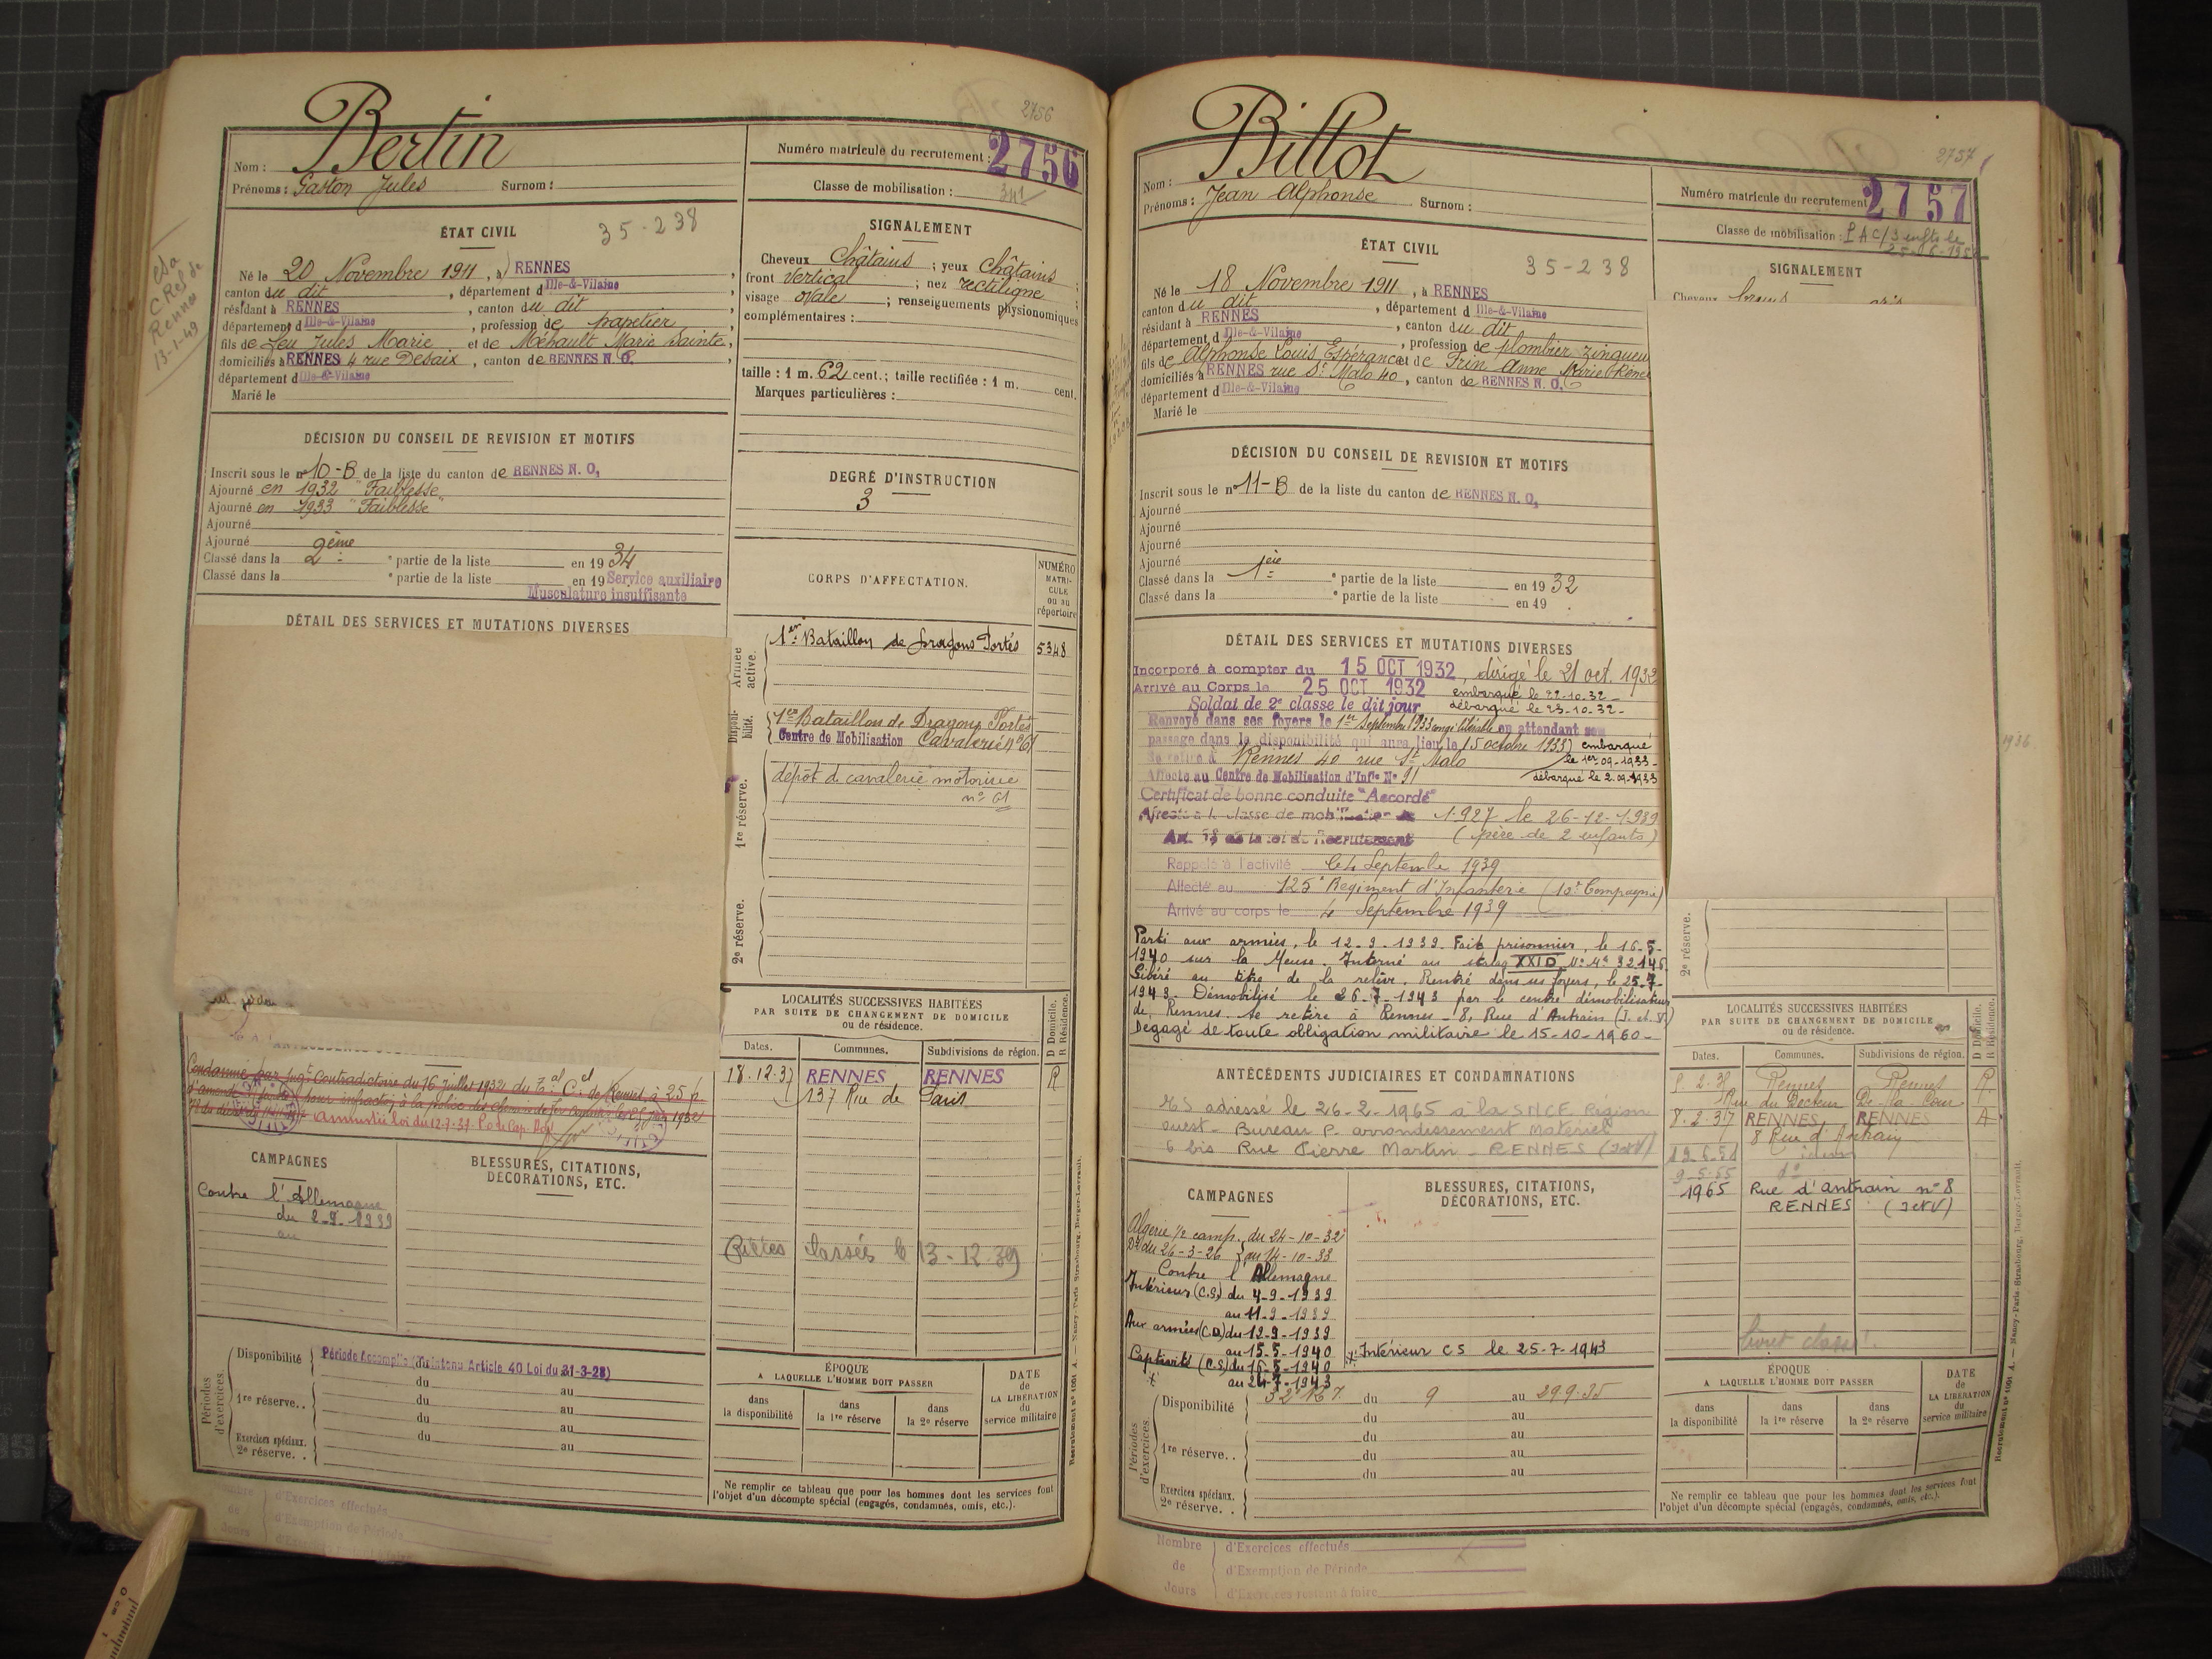 2756
Bertin
Nom :
Prénoms : Gaston Jules Surnom :
Numéro matricule du recrutement : 2756
Classe de mobilisation :
341
C. Rennes
13-1-49
ÉTAT CIVIL
35-238
Né le 20 Novembre 1911, à RENNES,
canton du dit, département d Ille-&-Vilaine
résidant à RENNES, canton du dit,
département d Ille-&-Vilaine, profession de papetier
fils de feu Jules Marie et de Mébault Marie Sainte,
domiciliés à RENNES 4 rue Desaix, canton de RENNES N. O.
département d Ille-&-Vilaine
Marié le
SIGNALEMENT
Cheveux Châtains ; yeux Châtains
front vertical ; nez rectiligne ;
visage ovale ; renseignements physionomiques
complémentaires :
taille : 1 m. 62 cent.; taille rectifiée : 1 m. cent.
Marques particulières :
DÉCISION DU CONSEIL DE REVISION ET MOTIFS
Inscrit sous le nº 10-B de la liste du canton de RENNES N. O,
Ajourné en 1932 "Faiblesse"
Ajourné en 1933 "Faiblesse"
Ajourné
Ajourné
Classé dans la 2ème partie de la liste en 1934
Classé dans la partie de la liste en 19 Service auxiliaire
Musculature insuffisante
DEGRÉ D'INSTRUCTION
3
DÉTAIL DES SERVICES ET MUTATIONS DIVERSES
CORPS D'AFFECTATION.
NUMÉRO MATRICULE ou au répertoire
Armée active.
1er Bataillon de Dragons Portés 5348
Disponibilité.
1er Bataillon de Dragons Portés
Centre de Mobilisation Cavalerie Nº 61
1re réserve.
dépôt de cavalerie motorisée
nº 61
2e réserve.
Condamné par jugt Contradictoire du 16 juillet 1932 du Tal Cel de Rennes à 25 f
d'amende pour infraction à la police des chemins de fer
Amnistié Loi du 12-7-37
LOCALITÉS SUCCESSIVES HABITÉES
PAR SUITE DE CHANGEMENT DE DOMICILE
ou de résidence.
D Domicile.
R Résidence.
Dates. Communes. Subdivisions de région.
18.12.37 RENNES RENNES R
137 Rue de Paris
CAMPAGNES
Contre l'Allemagne
du 2-9-1939
au
BLESSURES, CITATIONS,
DÉCORATIONS, ETC.
classés le 13-12-39
Périodes d'exercices.
Disponibilité Période Accomplie Article 40 Loi du 31-3-28)
du au
1re réserve.. du au
du au
Exercices spéciaux. du au
2e réserve. .
ÉPOQUE
A LAQUELLE L'HOMME DOIT PASSER
dans la disponibilité
dans la 1re réserve
dans la 2e réserve
DATE de LA LIBÉRATION du service militaire
Ne remplir ce tableau que pour les hommes dont les services font
l'objet d'un décompte spécial (engagés, condamnés, omis, etc.).
Recrutement nº 1001 A. — Nancy-Paris-Strasbourg, Berger-Levrault.
d'Exercices effectués
de d'Exemption de Période
Jours
2757
Billot
Nom :
Prénoms : Jean Alphonse Surnom :
Numéro matricule du recrutement 2757
Classe de mobilisation : PAC/3 enfts le
ÉTAT CIVIL
35-238
Né le 18 Novembre 1911, à RENNES
canton du dit, département d Ille-&-Vilaine
résidant à RENNES, canton du dit
département d Ille-&-Vilaine, profession de plombier zingueur
fils de Alphonse Louis Espérance et de Trin Anne Marie
domiciliés à RENNES rue St Malo 40, canton de RENNES N. O.
département d Ille-&-Vilaine
Marié le
SIGNALEMENT
Cheveux
DÉCISION DU CONSEIL DE REVISION ET MOTIFS
Inscrit sous le nº 11-B de la liste du canton de RENNES N. O,
Ajourné
Ajourné
Ajourné
Ajourné
Classé dans la 1ère partie de la liste en 1932
Classé dans la partie de la liste en 19
DÉTAIL DES SERVICES ET MUTATIONS DIVERSES
Incorporé à compter du 15 OCT 1932, dirigé le 21 oct. 1932
Arrivé au Corps le 25 OCT 1932 embarqué le 22-10-32-
Soldat de 2e classe le dit jour débarqué le 23-10-32-
Renvoyé dans ses foyers le 1er Septembre 1933 congé libérable en attendant son
passage dans la disponibilité qui aura lieu le 15 octobre 1933) embarqué
Se retire à Rennes 40 rue St Malo le 1er-09-1933-
Affecté au Centre de Mobilisation d'Infie Nº 91 débarqué le 2.09.1933
Certificat de bonne conduite "Accordé"
Affecté à la classe de mobilisation de 1927 le 26-12-1939
Art. 58 de la loi de Recrutement (père de 2 enfants)
Rappelé à l'activité le 4 Septembre 1939
Affecté au 125e Régiment d'Infanterie (10e Compagnie)
Arrivé au corps le 4 Septembre 1939
Parti aux armées, le 12-9-1939. Fait prisonnier, le 16-5-
1940 sur la Meuse. Interné au stalag XXID
Libéré au titre de la relève. Rentré dans ses foyers, le 25-7-
1943. Démobilisé le 26-7-1943 par le centre démobilisateur
de Rennes. Se retire à Rennes - 8, Rue d'Antrain (I. et V.)
Dégagé de toute obligation militaire le 15-10-1960-
2e réserve.
ANTÉCÉDENTS JUDICIAIRES ET CONDAMNATIONS
ES adressé le 26-2-1965 à la SNCF Région
ouest - Bureau P. arrondissement Matériel
6 bis Rue Pierre Martin - RENNES (I et V)
LOCALITÉS SUCCESSIVES HABITÉES
PAR SUITE DE CHANGEMENT DE DOMICILE
ou de résidence.
D Domicile.
R Résidence.
Dates. Communes. Subdivisions de région.
Rennes Rennes R.
8.2.37 RENNES RENNES A
8 Rue d'Antrain
9-5-55 dº
1965 Rue d'antrain nº 8
RENNES (I et V)
CAMPAGNES
Algérie 1/2 camp. du 24-10-32
au 14-10-33
Contre l'Allemagne
Intérieur (C.S.) du 4-9-1939
au 11-9-1939
Aux armées (C.D) du 12-9-1939
au 15-5-1940
Captivité (C.S.) du 16-5-1940
au 24-7-1943
BLESSURES, CITATIONS,
DÉCORATIONS, ETC.
Intérieur CS le 25-7-1943
livret classé
Périodes d'exercices
Disponibilité du 9 au 29.9.35
du au
du au
1re réserve.. du au
du au
Exercices spéciaux.
2e réserve. .
ÉPOQUE
A LAQUELLE L'HOMME DOIT PASSER
dans la disponibilité
dans la 1re réserve
dans la 2e réserve
DATE de LA LIBÉRATION du service militaire
Ne remplir ce tableau que pour les hommes dont les services font
l'objet d'un décompte spécial (engagés, condamnés, omis, etc.).
Recrutement nº 1001 A. — Nancy-Paris-Strasbourg, Berger-Levrault.
Nombre d'Exercices effectués
de d'Exemption de Période
Jours d'Exercices restant à faire